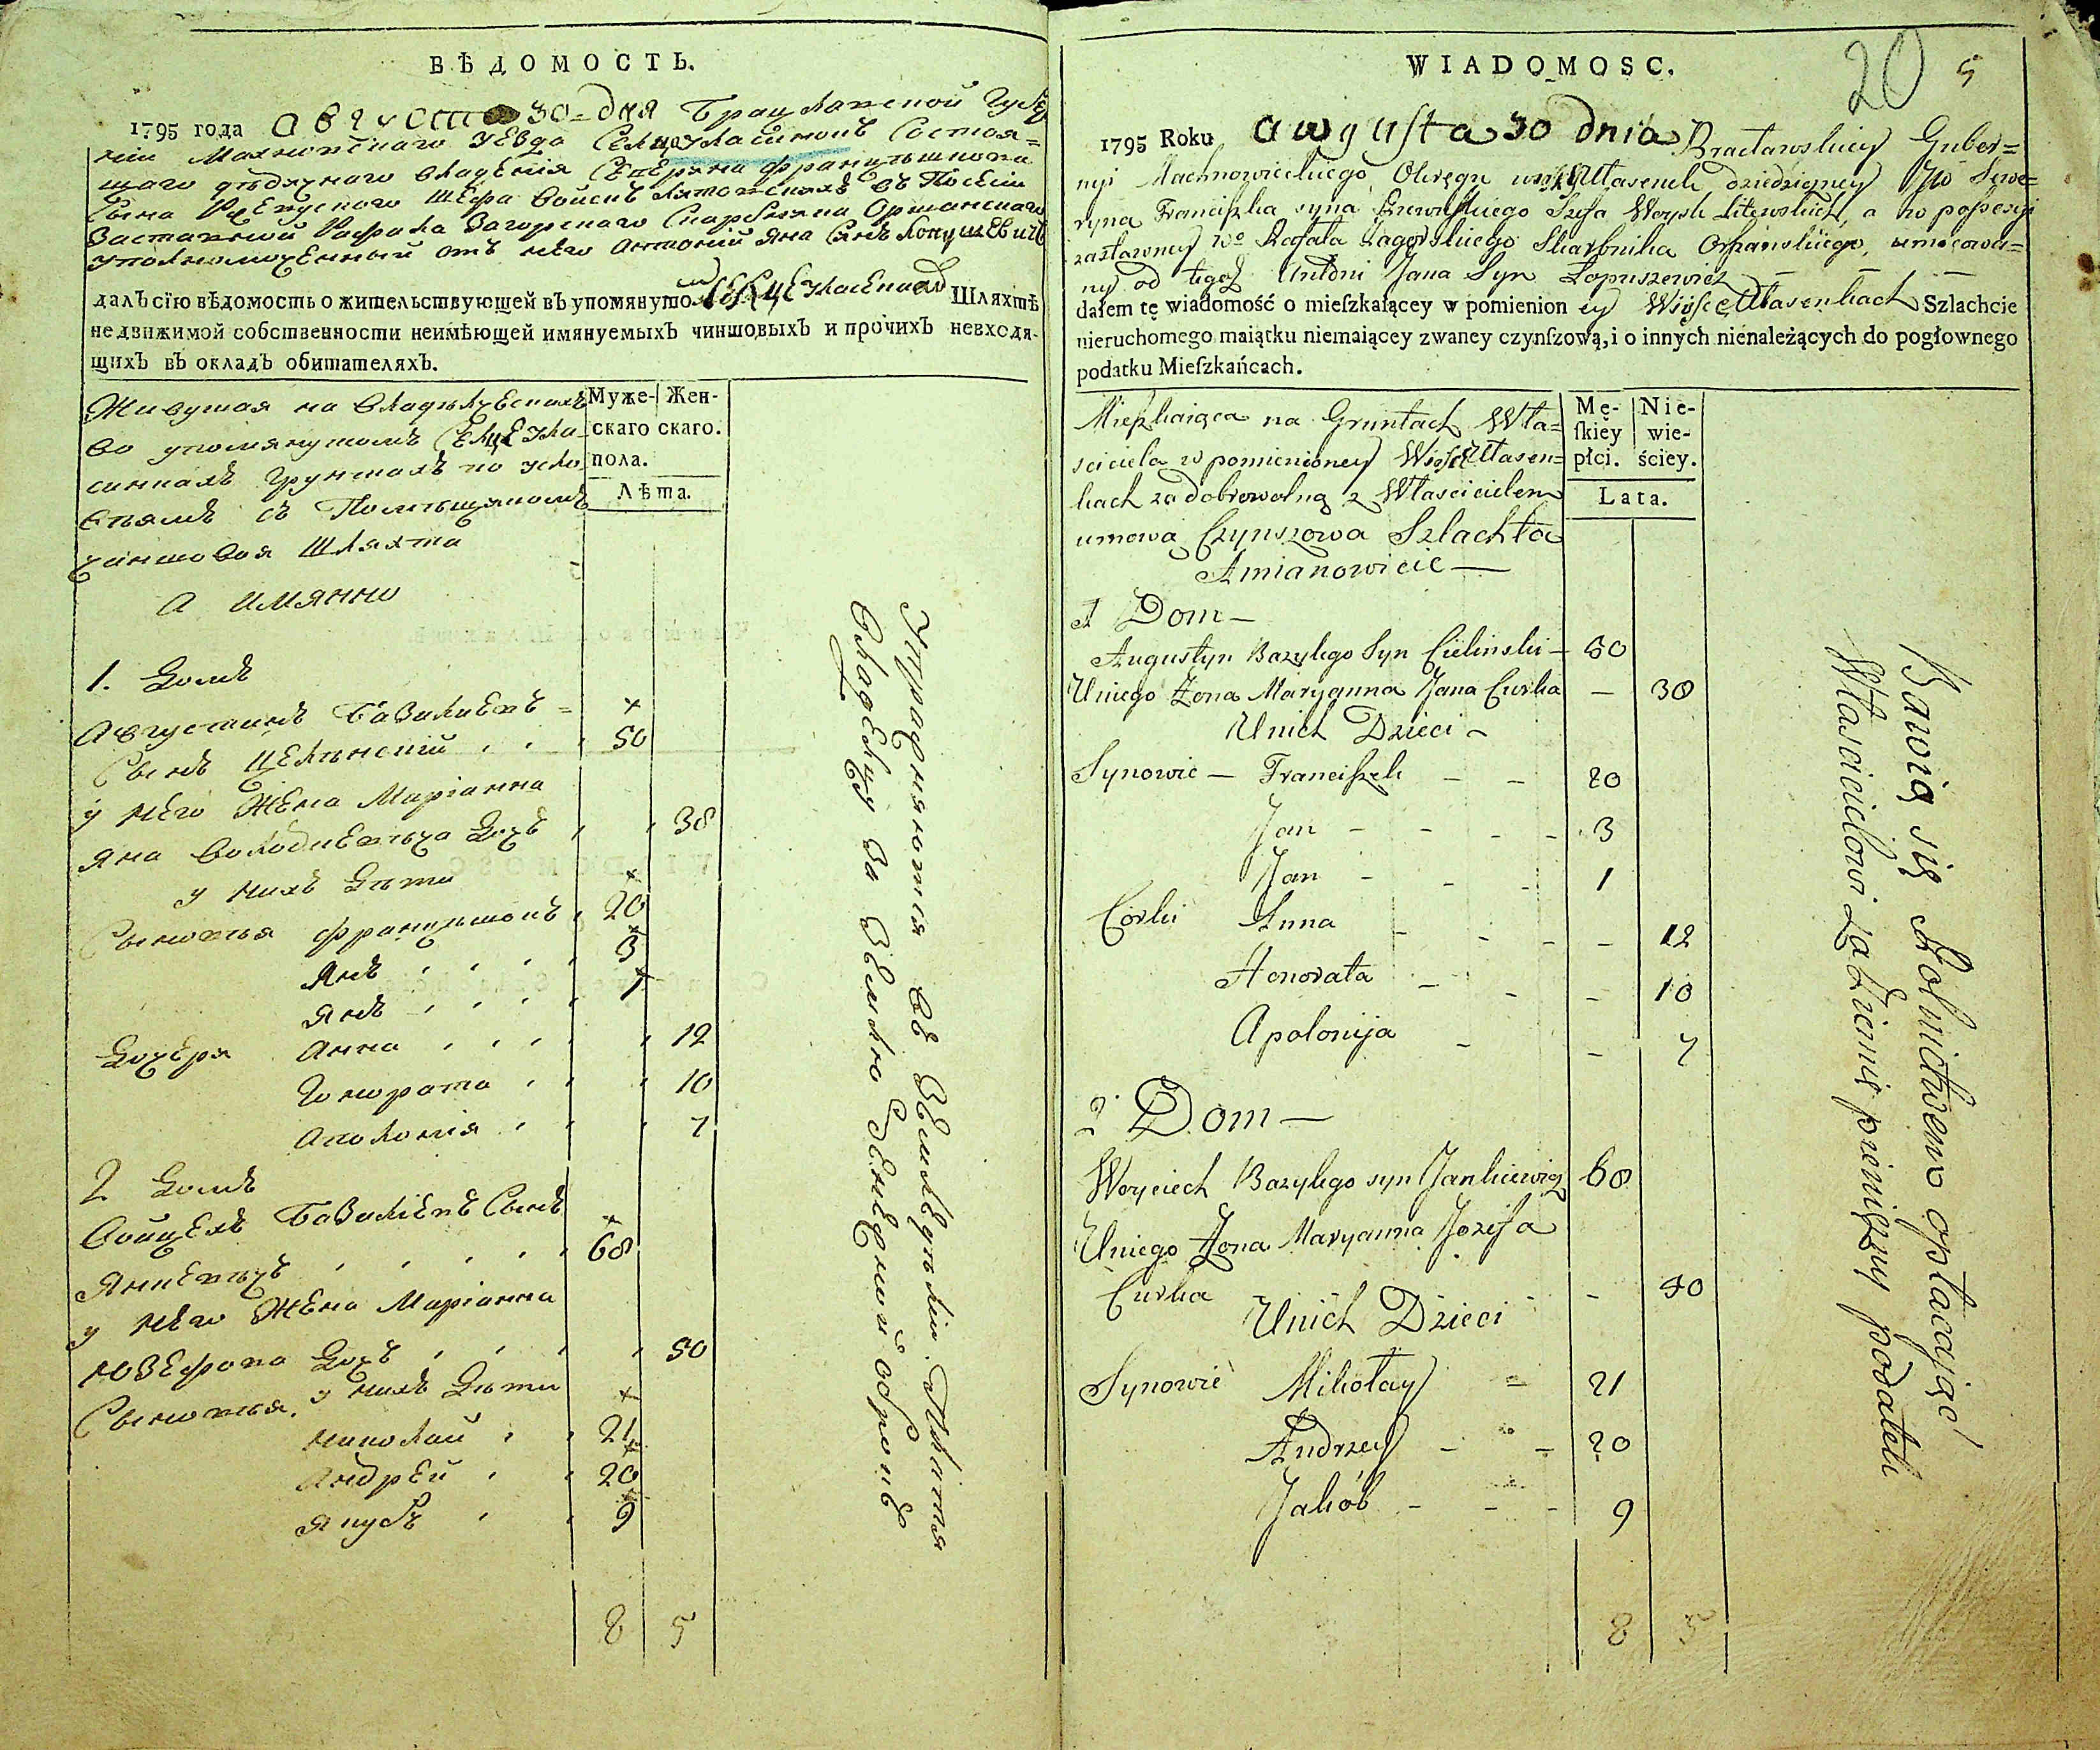 ВѢДОМОСТЬ.
1795 года Августа 30-дня Брацлавской Губер
нии Махновскаго Уезда Сельце Уласинкахъ Состоя=
щаго дѣдичнаго владения Северина Францишкова
Сына Ржевускаго Шефа Войскъ Литовскихъ въ Посесии
Заставной Рафала Загорскаго Скарбника Оршанскаго
уполномоченный отъ него Антоний Яна Сынъ Лопушевичъ
далъ сїю вѣдомость о жительствующей въ упомянуто мъ Сельце Уласинкахъ Шляхтѣ
недвижимой собственности неимѣющей имянуемыхъ чиншовыхъ и прочихъ невходя-
щихъ въ окладъ обитателяхъ.
Живущая на владельческихъ
во упомянутомъ Сельце Ула-
синкахъ Грунтахъ по усло
виямъ съ Помещикомъ
чиншовая Шляхта
а имянно
Муже- Жен-
скаго скаго.
пола.
Лѣта.
1. Домъ
Августинъ Базилиевъ =
Сынъ Целинский 50
у него Жена Марианна
Яна Дочь 38
у нихъ Дети
Сыновья Францишекъ 20
Янъ 3
Янъ 1
Дочери Анна 12
Гонората 10
Аполония 7
2 Домъ
Войцехъ Базилиевъ Сынъ
Янкевичъ 68
у него Жена Марианна
Юзефова Дочь 50
у нихъ Дети
Сыновья
Николай 21
Андрей 20
Якубъ 9
8 5
Упражняются въ Земледелии. Платя
Владельцу за Землю Денежный оброкъ
WIADOMOSC.
20 5
1795 Roku augusta 30 dnia Bracławskiey Guber=
nyi Machnowieckiego Okręgu wsi Ułasenek dziedziczney JW Sewe=
ryna Franciszka syna Rzewuskiego Szefa Woysk Litewskich, a w posesyi
zastawney Wo Rafała Zagorskiego Skarbnika Orszanskiego, umocowa=
ny od tegoż Antoni Jana Syn Łopuszewicz
dałem tę wiadomość o mieſzkaiącey w pomienion ey Wiosce Ułasenkach Szlachcie
nieruchomego maiątku niemaiącey zwaney czynſzową, i o innych nienależących do pogłownego
podatku Mieſzkańcach.
Mieszkaiąca na Gruntach Wła=
sciciela w pomienioney Wiosce Ułasen=
kach za dobrowolną z Włascicielem
umową Czynszowa Szlachta
Amianowicie —
Mę- Nie-
ſkiey wie-
płci. ściey.
Lata.
1 Dom —
Augustyn Bazylego Syn Cielinski — 50
Uniego Żona Maryanna Jana Curka — 38
Unich Dzieci —
Synowie — Franciszek — — 20
Jan — — — — 3
Jan — — — 1
Corki Anna — — — — 12
Honorata — — — 10
Apolonija — — 7
2 Dom —
Woyciech Bazylego syn Jankiewicz 68
Uniego Żona Maryanna Jozefa
Curka — — 50
Unich Dzieci
Synowie Mikołay = 21
Andrzey — — 20
Jakób — — — 9
8 5
Bawią się Rolnictwem opłacając
Włascicielowi za Ziemię pieniężny podatek